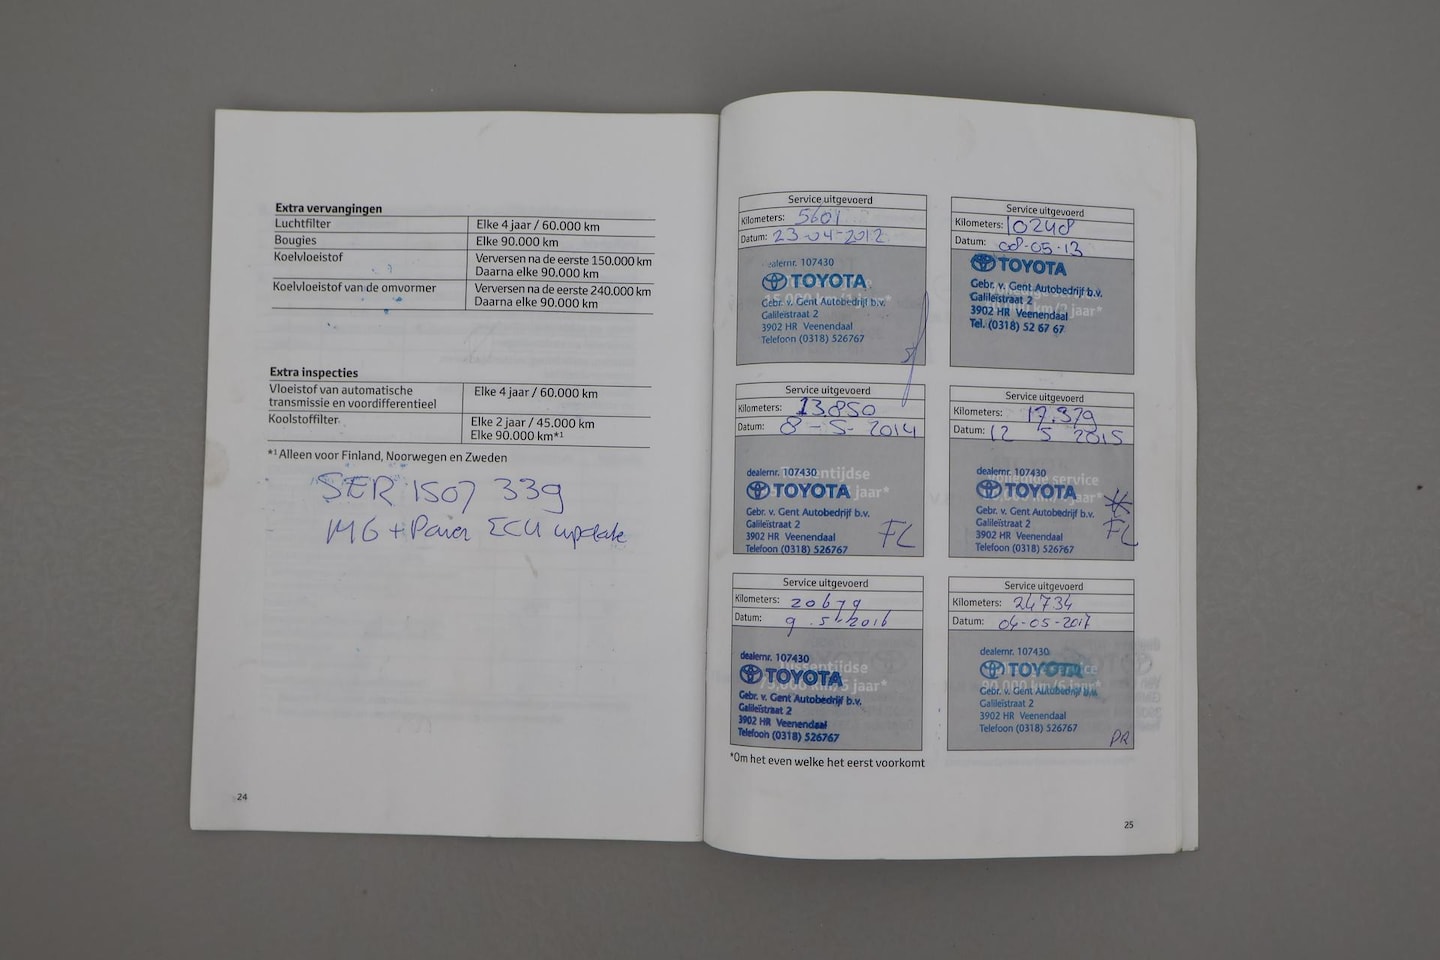 Extra vervangingen
Luchtfilter Elke 4 jaar / 60.000 km
Bougies Elke 90.000 km
Koelvloeistof Verversen na de eerste 150.000 km
Daarna elke 90.000 km
Koelvloeistof van de omvormer Verversen na de eerste 240.000 km
Daarna elke 90.000 km
Extra inspecties
Vloeistof van automatische Elke 4 jaar / 60.000 km
transmissie en voordifferentieel
Koolstoffilter Elke 2 jaar / 45.000 km
Elke 90.000 km*1
*1 Alleen voor Finland, Noorwegen en Zweden
SER 1507 339
MG + Power ECU update
24
Service uitgevoerd
Kilometers: 5601
Datum: 23-04-2012
dealernr. 107430
TOYOTA
15.000 km/1 jaar*
Gebr. v. Gent Autobedrijf b.v.
Galileïstraat 2
3902 HR Veenendaal
Telefoon (0318) 526767
Service uitgevoerd
Kilometers: 10248
Datum: 08-05-13
TOYOTA
Gebr. v. Gent Autobedrijf b.v.
Galileïstraat 2
km/2 jaar*
3902 HR Veenendaal
Tel. (0318) 52 67 67
Service uitgevoerd
Kilometers: 13.850
Datum: 8-5-2014
dealernr. 107430
Tussentijdse
TOYOTA
jaar*
Gebr. v. Gent Autobedrijf b.v.
Galileïstraat 2
3902 HR Veenendaal
Telefoon (0318) 526767
FL
Service uitgevoerd
Kilometers: 17.379
Datum: 12 5 2015
dealernr. 107430
Volledige service
TOYOTA
jaar*
Gebr. v. Gent Autobedrijf b.v.
Galileïstraat 2
3902 HR Veenendaal
Telefoon (0318) 526767
FL
Service uitgevoerd
Kilometers: 20679
Datum: 9-5-2016
dealernr. 107430
Tussentijdse
TOYOTA
75.000 km/5 jaar*
Gebr. v. Gent Autobedrijf b.v.
Galileïstraat 2
3902 HR Veenendaal
Telefoon (0318) 526767
Service uitgevoerd
Kilometers: 24734
Datum: 04-05-2017
dealernr. 107430
TOYOTA
90.000 km/6 jaar*
Gebr. v. Gent Autobedrijf b.v.
Galileïstraat 2
3902 HR Veenendaal
Telefoon (0318) 526767
PR
*Om het even welke het eerst voorkomt
25